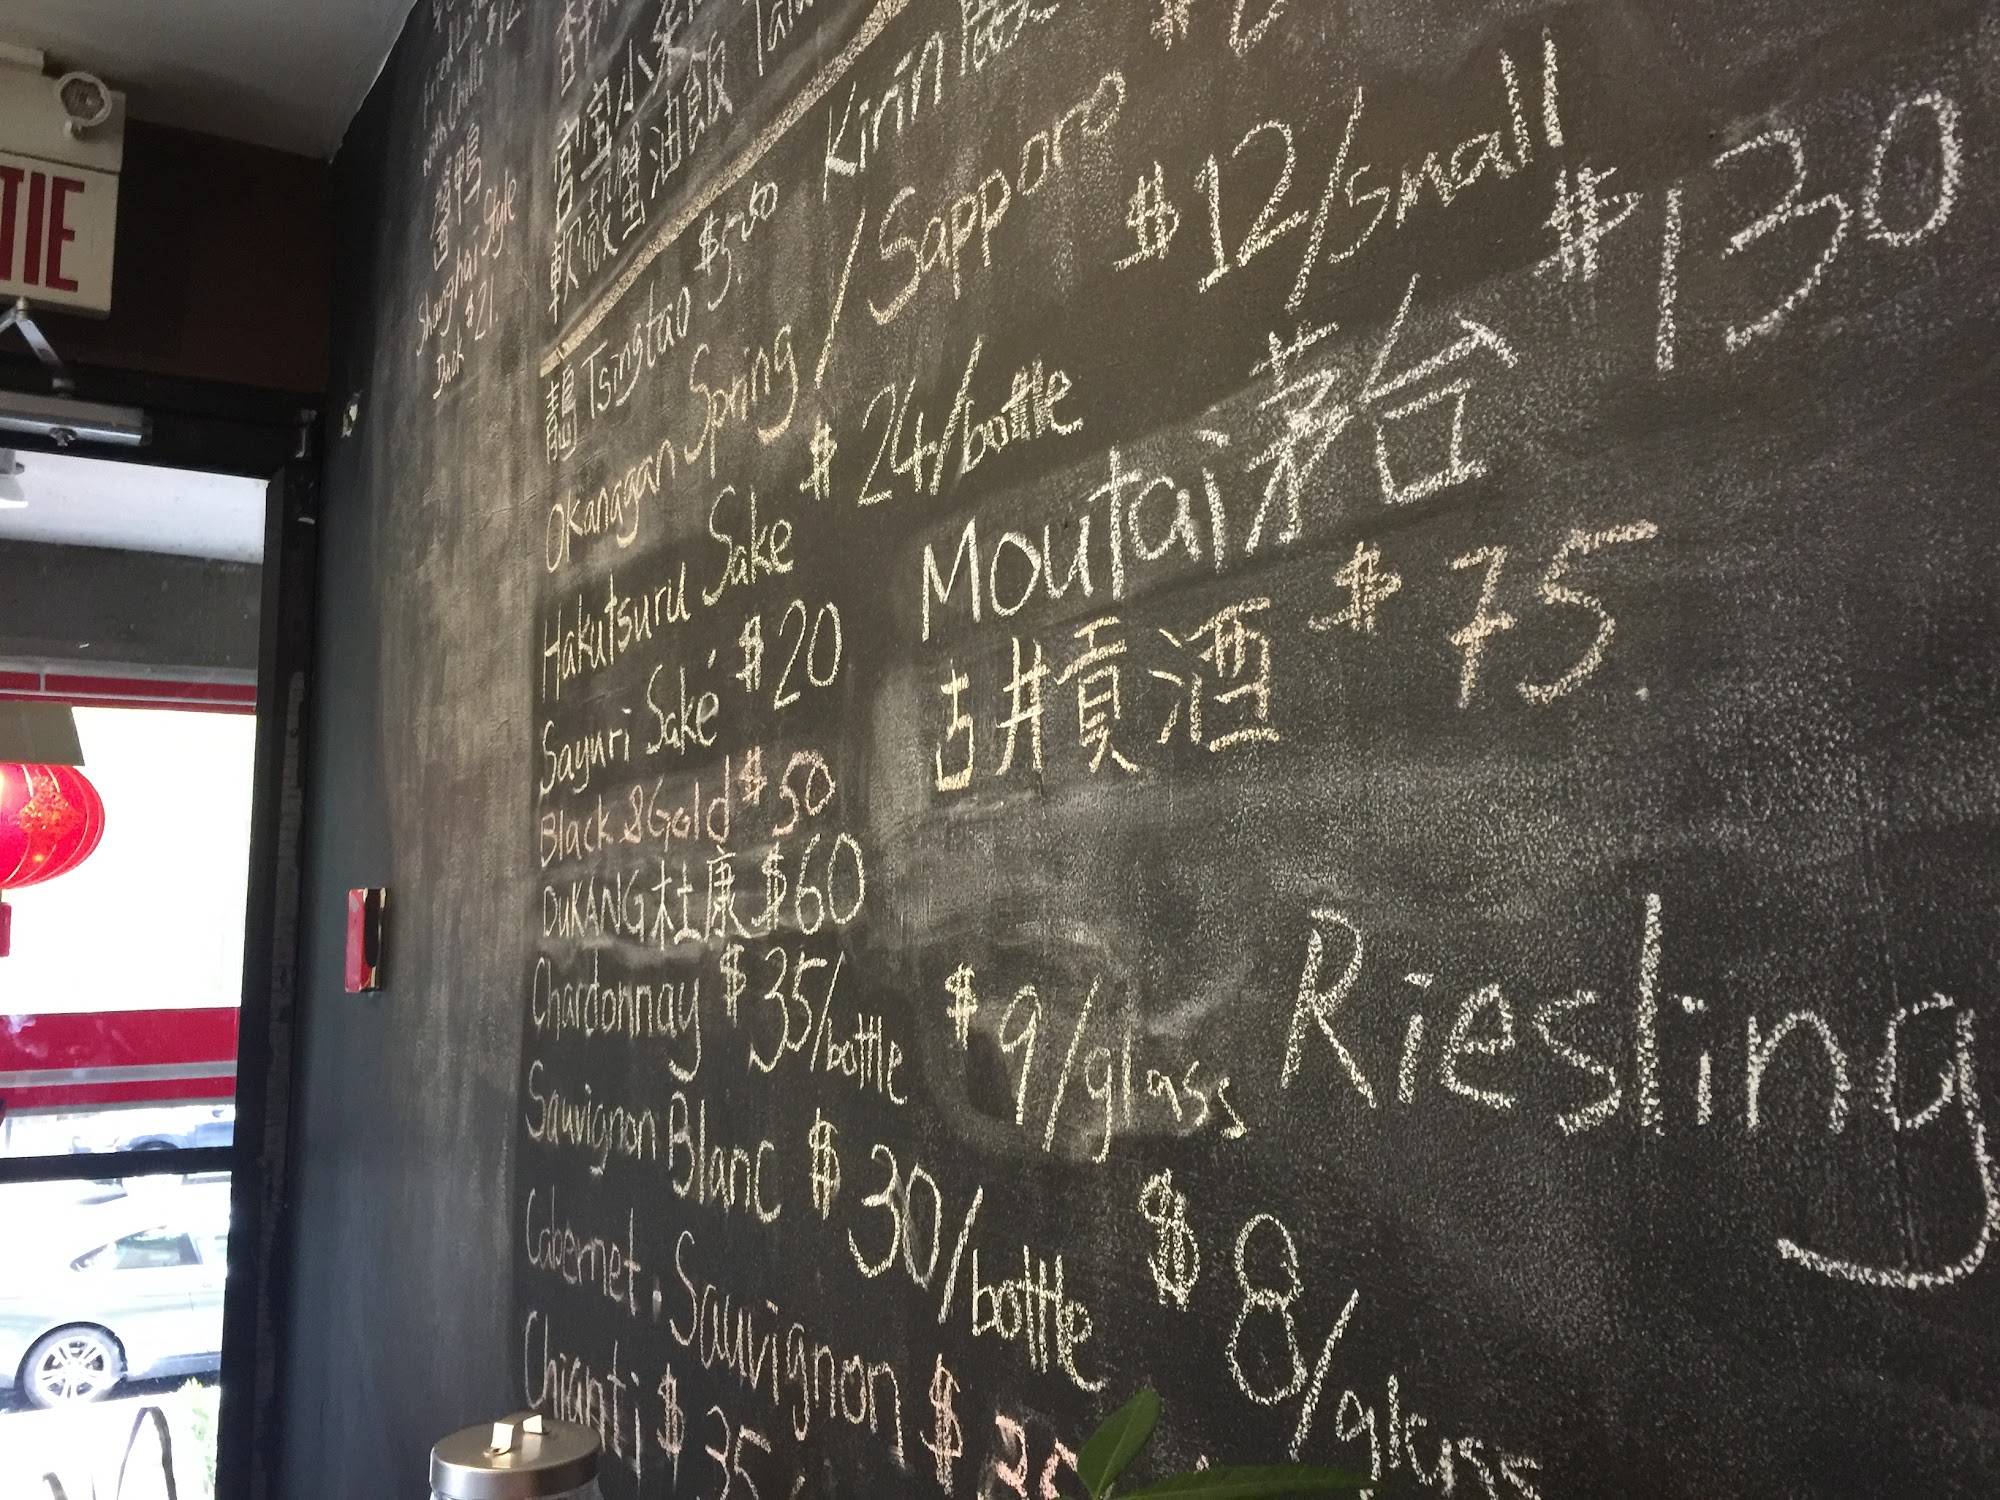 TIE
with Chilli
醬鴨
Shanghai Style
Duck $21.
官宝小
軟殼蟹油飯
Tsingtao $5.00 Kirin
Okanagan Spring / Sapporo
Hakutsuru Sake $24/bottle $12/small
Sayuri Saké $20 Moutai 茅台 $130
Black & Gold $50 古井貢酒 $75.
DUKANG 杜康 $60
Chardonnay $35/bottle $9/glass Riesling
Sauvignon Blanc $30/bottle $8/glass
Cabernet. Sauvignon $
Chianti $35